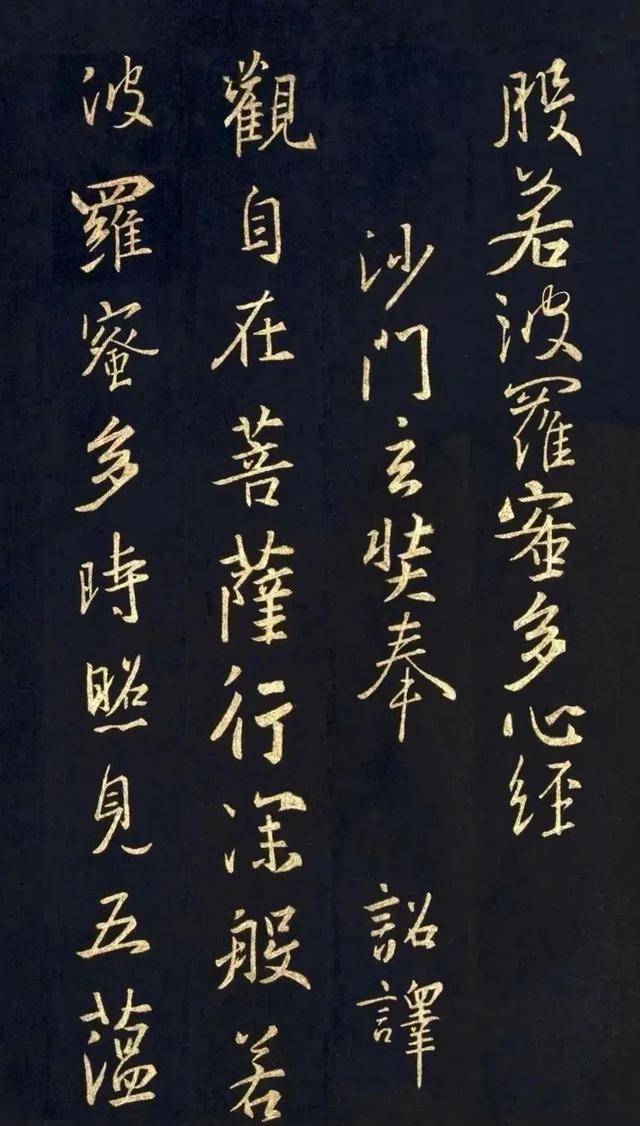 般若波羅蜜多心経
沙門玄奘奉 詔譯
觀自在菩薩行深般若
波羅蜜多時照見五蘊